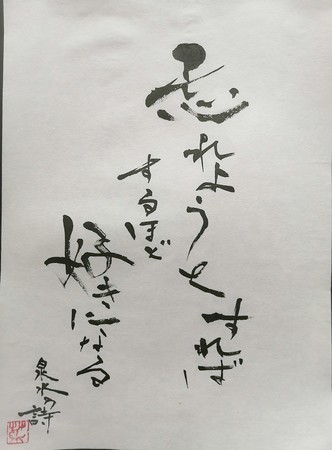 忘れようとすれば
するほど
好きになる
泉水の詩